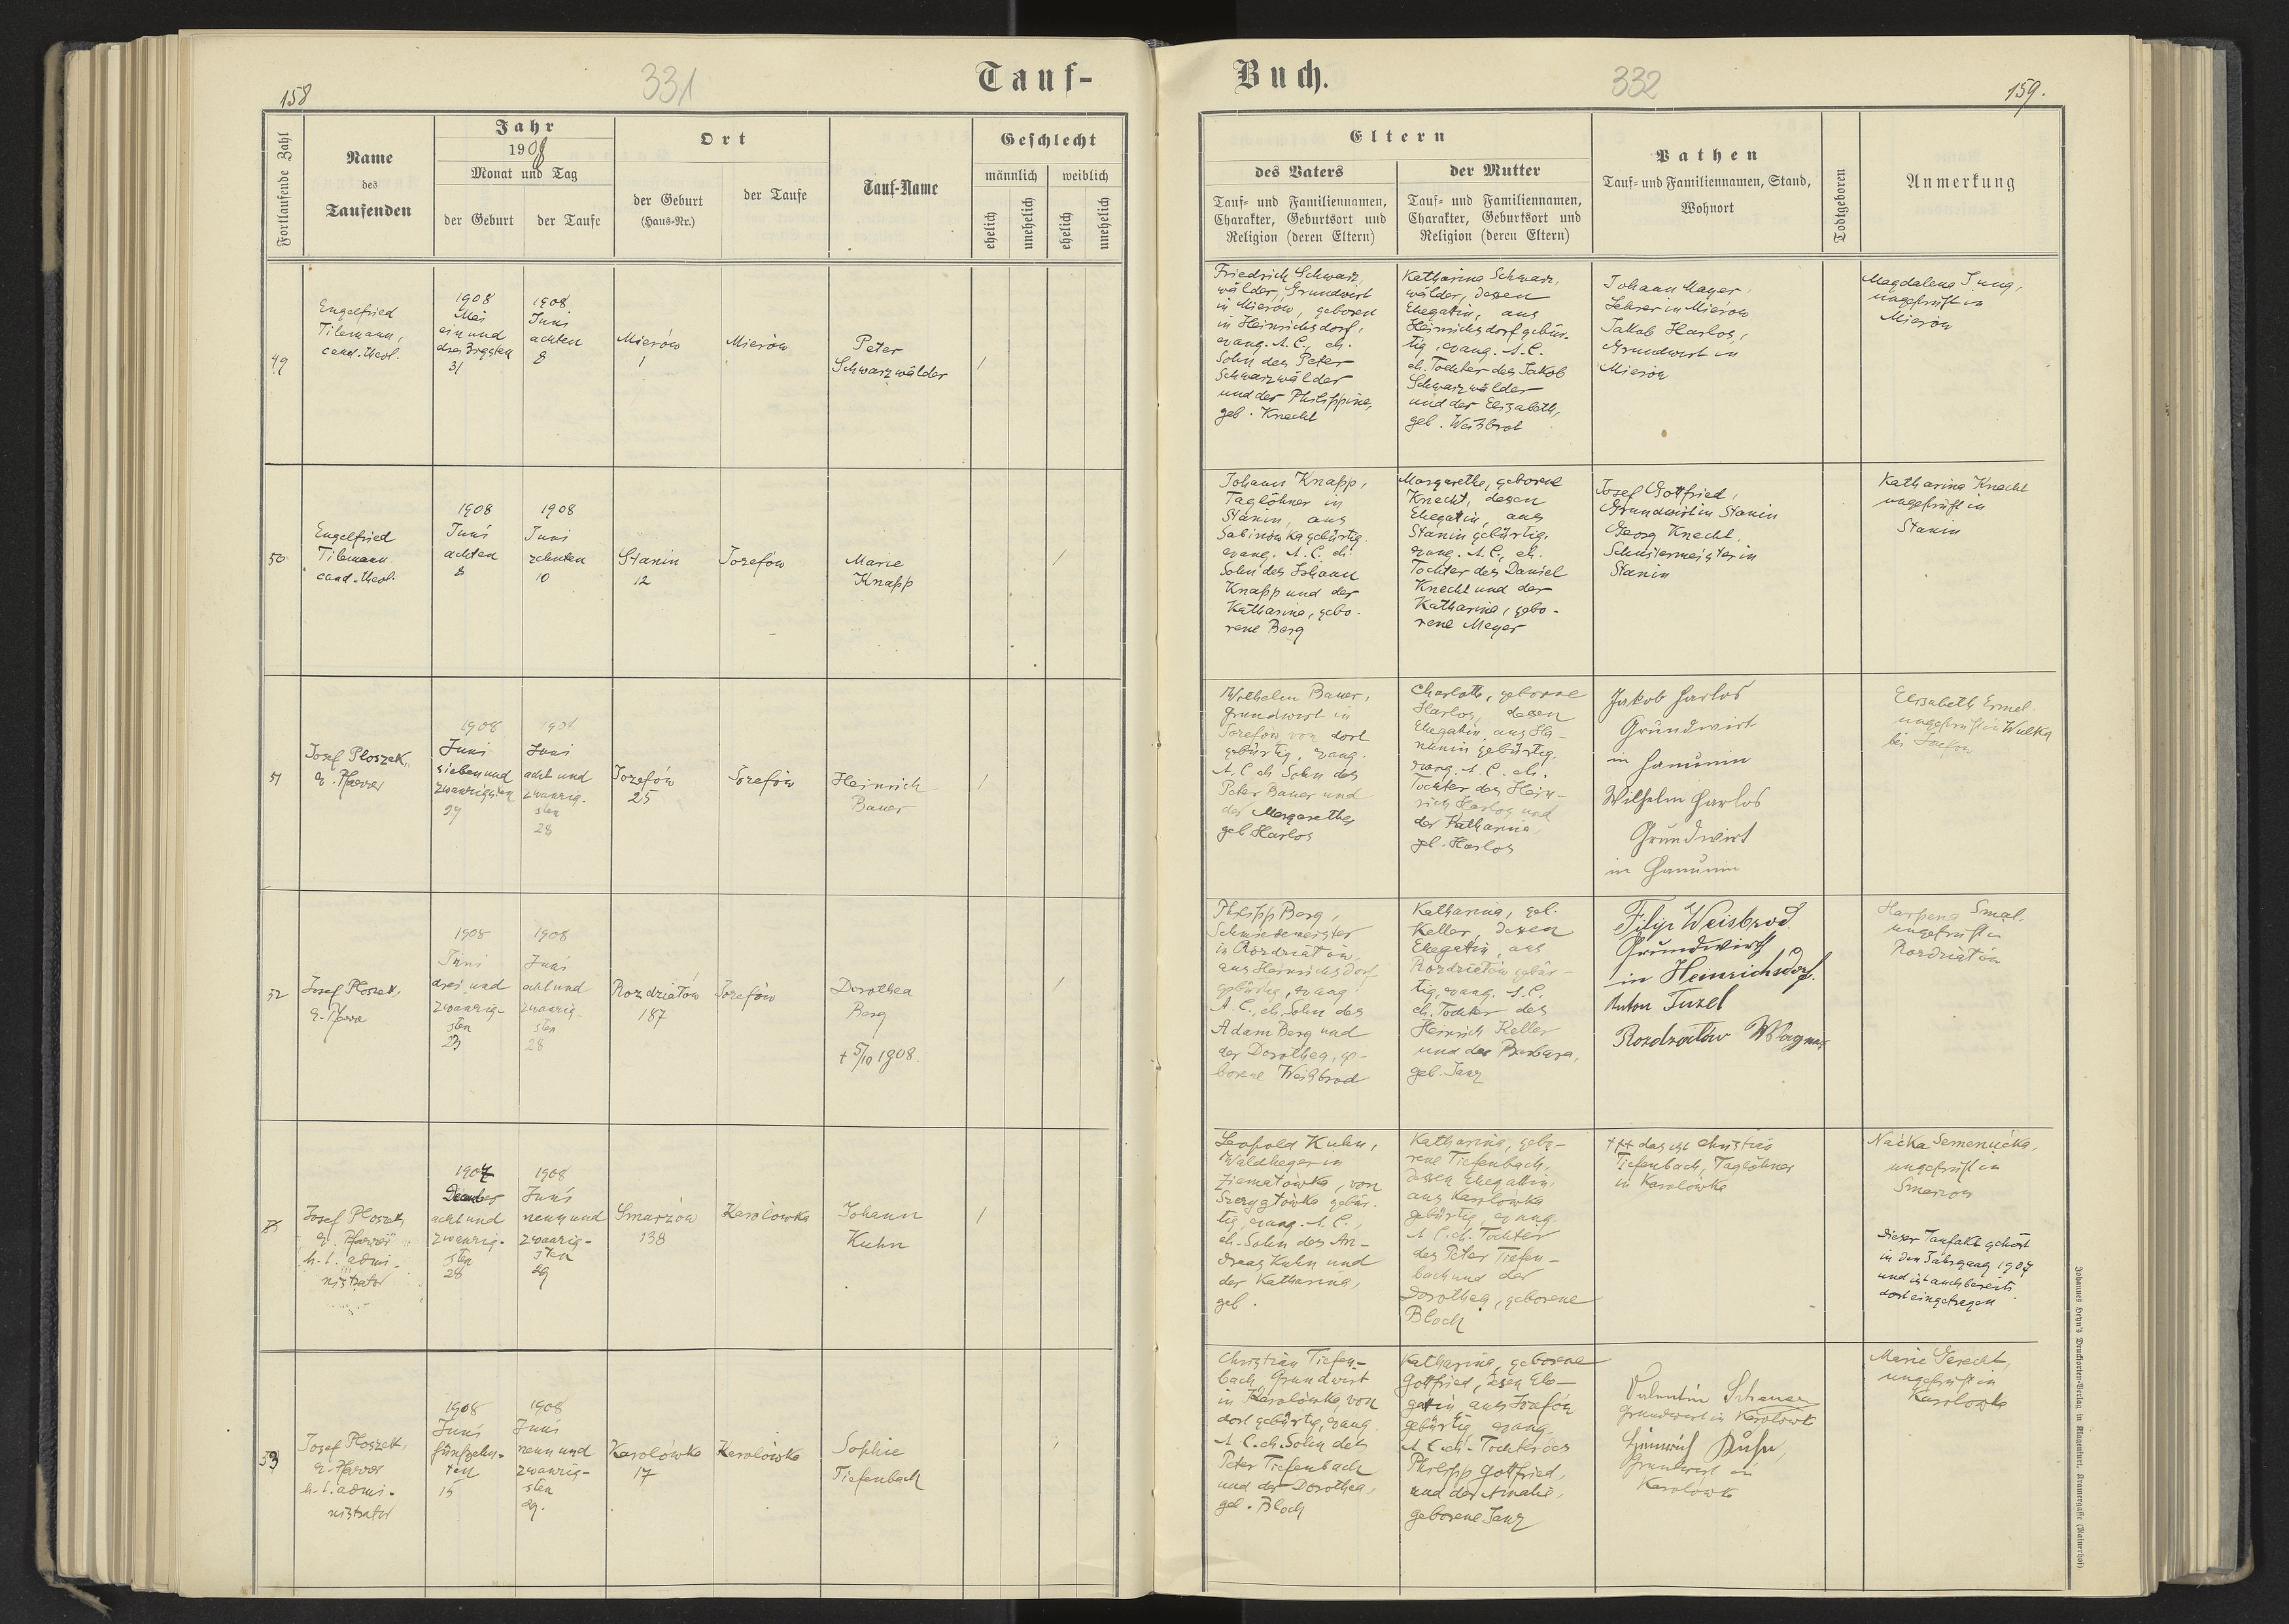 158
331
Tauf-
Fortlaufende Zahl
Name
des
Taufenden
Jahr
1908
Monat und Tag
der Geburt
der Taufe
Ort
der Geburt
(Haus-Nr.)
der Taufe
Tauf-Name
Geschlecht
männlich
weiblich
ehelich
unehelich
ehelich
unehelich
49
Engelfried
Tilemann,
cand. theol.
1908
Mai
ein und
dreizigsten
31
1908
Juni
achten
8
Mierów
1
Mierów
Peter
Schwarzwälder
/
50
Engelfried
Tilemann
cand. theol.
1908
Juni
achten
8
1908
Juni
zehnten
10
Stanin
12
Josefów
Marie
Knapp
/
51
Josef Ploszek,
e. Pfarrer
1908
Juni
sieben und
zwanzigsten
27
1908
Juni
acht und
zwanzig-
sten
28
Jozefów
25
Jozefów
Heinrich
Bauer
/
52
Josef Ploszek,
e. Pfarre
1908
Juni
drei und
zwanzig-
sten
23
1908
Juni
acht und
zwanzig-
sten
28
Rozdziałów
187
Jozefów
Dorothea
Berg
+ 5/10 1908.
/
Josef Ploszek,
e. Pfarrer
h. t. admi-
nistrator
1907
December
acht und
zwanzig-
sten
28
1908
Juni
neun und
zwanzig-
sten
29
Smarzów
138
Karolówka
Johann
Kuhn
/
53
Josef Ploszek,
e. Pfarrer
h. t. admi-
nistrator
1908
Juni
fünfzehn-
ten
15
1908
Juni
neun und
zwanzig-
sten
29.
Karolówka
17
Karolówka
Sophie
Tiefenbach
/
Buch.
332
159.
Eltern
des Vaters
Tauf- und Familiennamen,
Charakter, Geburtsort und
Religion (deren Eltern)
der Mutter
Tauf- und Familiennamen,
Charakter, Geburtsort und
Religion (deren Eltern)
Pathen
Tauf- und Familiennamen, Stand,
Wohnort
Todtgeboren
Anmerkung
Friedrich Schwarz,
wälder, Grundwirt
in Mierów, geboren
in Heinrichsdorf,
evang. A. C., eh.
Sohn des Peter
Schwarzwälder
und der Philippine,
geb. Knecht
Katharina Schwarz,
wälder, dessen
Ehegatin, aus
Heinrichsdorf gebür-
tig, evang. A. C.
eh. Tochter des Jakob
Schwarzwälder
und der Elisabeth,
geb. Weißbrot
Johann Mayer,
Lehrer in Mierów
Jakob Harlos,
Grundwirt in
Mierów
Magdalena Jung,
ungeprüft in
Mierów
Johann Knapp,
Taglöhner in
Stanin, aus
Sabinówka gebürtig.
evang. A. C. eh.
Sohn des Johann
Knapp und der
Katharina, gebo-
rene Berg
Margarethe, geborene
Knecht, dessen
Ehegatin, aus
Stanin gebürtig.
evang. A. C., eh.
Tochter des Daniel
Knecht und der
Katharina, gebo-
rene Meyer
Josef Gottfried,
Grundwirt in Stanin
Georg Knecht,
Schustermeister in
Stanin
Katharina Knecht
ungeprüft in
Stanin
Wilhelm Bauer,
Grundwirt in
Jozefów von dort
gebürtig, evang.
A. C. eh. Sohn des
Peter Bauer und
der Margarethe,
geb. Harlos
Charlotte, geborene
Harlos, dessen
Ehegatin, aus Ha-
nunin gebürtig,
evang. A. C. eh.
Tochter des Hein-
rich Harlos und
der Katharina,
geb. Harlos
Jakob Harlos
Grundwirt
in Hanunin
Wilhelm Harlos
Grundwirt
in Hanunin
Elisabeth Ermel.
ungeprüft in Wulka
bei Josefow
Philipp Berg,
Schmiedemeister
in Rozdziałów,
aus Heinrichsdorf
gebürtig, evang.
A. C., eh. Sohn des
Adam Berg und
der Dorothea, ge-
borene Weißbrod
Katharina, geb.
Keller, dessen
Ehegattin, aus
Rozdziałów gebür-
tig, evang. A. C.
eh. Tochter des
Heinrich Keller
und der Barbara,
geb. Janz
Filip Weisbrod
Grundwirth
in Heinrichsdorf.
Anton
Rozdziałów Wagner
Smal.
ungeprüft in
Rozdziałów
Leopold Kuhn,
Waldheger in
von
gebür-
tig, evang. A. C.,
eh. Sohn des An-
dreas Kuhn und
der Katharina,
geb.
Katharina, gebo-
rene Tiefenbach,
dessen Ehegattin,
aus Karolówka
gebürtig, evang
A. C. eh. Tochter
des Peter Tiefen-
bach und der
Dorothea, geborene
Bloch
+++ das ist Christian
Tiefenbach, Taglöhner
in Karolówka
Naćka Semenućka,
ungeprüft in
Smarzow
Dieser Taufakt gehört
in den Jahrgang 1907
und ist auch bereits
dort eingetragen
Christian Tiefen-
bach, Grundwirt
in Karolówka, von
dort gebürtig, evang
A. C. eh. Sohn des
Peter Tiefenbach
und der Dorothea,
geb. Bloch
Katharina, geborene
Gottfried, dessen Ehe-
gatin, aus Josefów
gebürtig, evang
A. C. eh. Tochter des
Philipp Gottfried,
und der Amalie,
geborene Janz
Valentin
Grundwirt in Karolówk
Heinrich Kuhn,
Grundwirt in
Karolówk
Marie Gerecht,
ungeprüft in
Karolowka
Johannes Heyn's Drucksorten-Verlag in Klagenfurt, Kramergasse (Rainerhof)